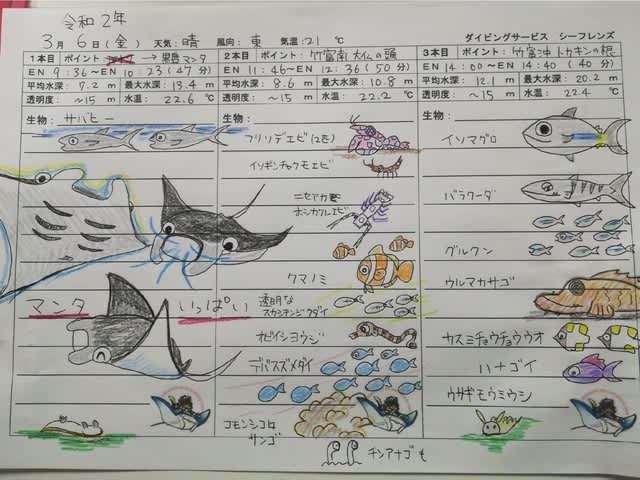 令和2年
3月 6日(金) 天気:晴 風向:東 気温:21 ℃ ダイビングサービス シーフレンズ
1本目 ポイント: → 黒島マンタ
EN 9:36~EN 10:23(47分)
平均水深:7.2 m 最大水深:13.4 m
透明度:~15 m 水温:22.6 ℃
生物: サバヒー
マンタ いっぱい
2本目 ポイント:竹富南 大仏の頭
EN 11:46~EN 12:36(50分)
平均水深:8.6 m 最大水深:10.8 m
透明度:~15 m 水温:22.2 ℃
生物:
フリソデエビ(2匹)
イソギンチャクモエビ
ニセアカホシカクレエビ
クマノミ
透明な
スカシテンジクダイ
オビイシヨウジ
デバスズメダイ
コモンシコロ
サンゴ
チンアナゴも
3本目 ポイント:竹富沖 トカキンの根
EN 14:00~EN 14:40(40分)
平均水深:12.1 m 最大水深:20.2 m
透明度:~15 m 水温:22.4 ℃
生物:
イソマグロ
バラクーダ
グルクン
ウルマカサゴ
カスミチョウチョウウオ
ハナゴイ
ウサギモウミウシ